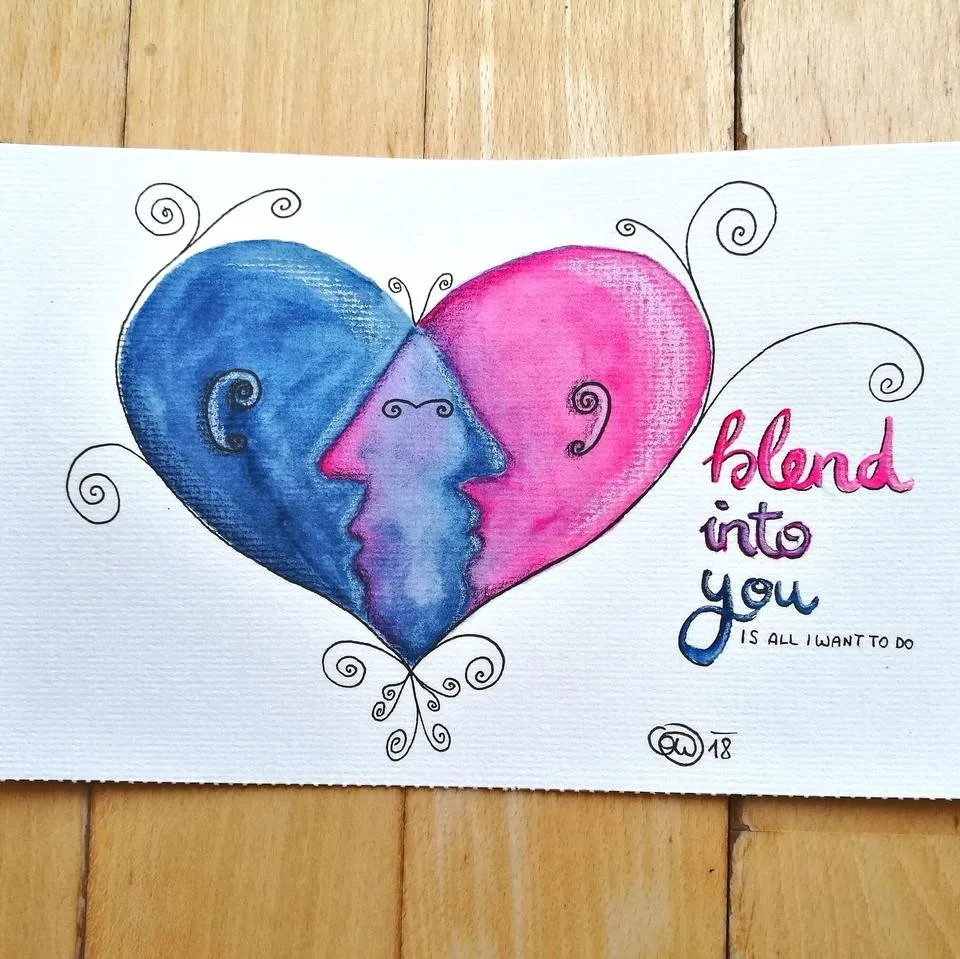 blend
into
you
IS ALL I WANT TO DO
18